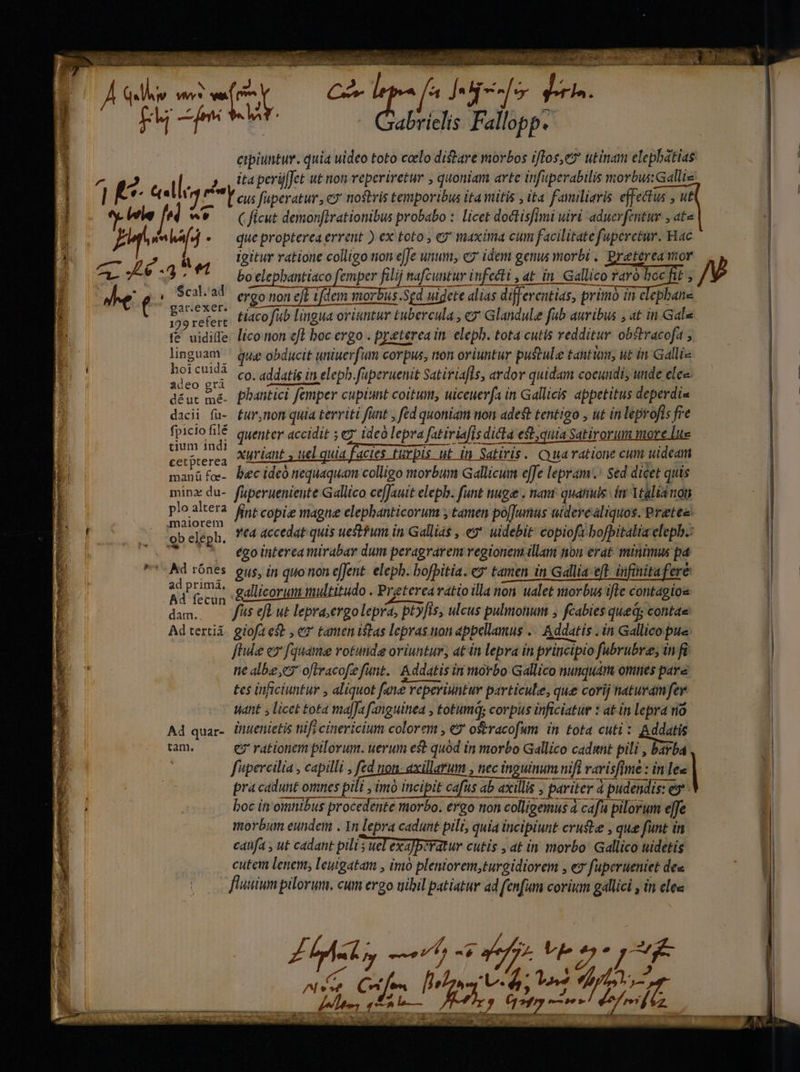 Gabrielis Fallopp.
cipiuntur. quia uideo toto cœlo distare morbos istos, et utinam elephātias
ita perijsset ut non reperiretur, quoniam arte insuperabilis morbus: Gallicus
superatur, et nostris temporibus ita mitis, ita familiaris effectus, ut
(sicut demonstrationibus probabo: licet doctissimi uiri aduersentur, atque
propterea errent) ex toto, et maxima cum facilitate superetur. Hac
igitur ratione colligo non esse unum, et idem genus morbi. Præterea mor
bo elephantiaco semper filij nascuntur infecti, at in Gallico raro hoc fit,
ergo non est ijsdem morbus. Sed uidete alias differentias, primò in elephan=
tiaco sub lingua oriuntur tubercula, et Glandulæ sub auribus, at in Gal=
lico non est hoc ergo. præterea in eleph. tota cutis redditur obstracosa,
quæ obducit uniuersum corpus, non oriuntur pustulæ tantùm, ut in Galli=
co. addatis in eleph. superuenit Satiriasis, ardor quidam coeundi, unde ele=
phantici semper cupiunt coitum, uiceuersa in Gallicis appetitus deperdi=
tur, non quia territi sunt, sed quoniam non adest tentigo, ut in leprosis fre
quenter accidit; et ideò lepra satiriasis dicta est, quia Satirorum more lu=
xuriant, uel quia facies turpis ut in Satiris. Qua ratione cum uideam
hæc ideò nequaquam colligo morbum Gallicum esse lepram. Sed dicet quis
superueniente Gallico cessauit eleph. sunt nugæ. nam quamuis in Italia non
sint copiæ magnæ elephanticorum, tamen possumus uidere aliquos. Præte=
rea accedat quis uestrum in Gallias, et uidebit copiosa hospitalia eleph.
ego interea mirabar dum peragrarem regionem illam non erat minimus pa
gus, in quo non essent eleph. hospitia. et tamen in Gallia est infinita ferè
gallicorum multitudo. Præterea ratio illa non ualet morbus iste contagio=
sus est ut lepra, ergo lepra, ptysis, ulcus pulmonum, scabies quæq; conta=
giosa est, et tamen istas lepras non appellamus. Addatis. in Gallico pu=
stulæ et squamæ rotundæ oriuntur, at in lepra in principio subrubræ, in fi
ne albæ, et ostracosæ sunt. Addatis in morbo Gallico nunquàm omnes par=
tes inficiuntur, aliquot sanæ reperiuntur particulæ, quæ corij naturam ser
uant, licet tota massa sanguinea, totumq; corpus inficiatur: at in lepra nō
inuenietis nisi cinericium colorem, et ostracosum in tota cuti: Addatis
et rationem pilorum. uerum est quòd in morbo Gallico cadunt pili, barba,
supercilia, capilli, sed non axillarum, nec inguinum nisi rarissimè: in le=
pra cadunt omnes pili, imò incipit casus ab axillis, pariter à pudendis: et
hoc in omnibus procedente morbo. ergo non colligemus à casu pilorum esse
morbum eundem. In lepra cadunt pili, quia incipiunt crustæ, quæ sunt in
causa, ut cadant pili; uel exasperatur cutis, at in morbo Gallico uidetis
cutem lenem, leuigatam, imò pleniorem, turgidiorem, et superueniet de=
fluuium pilorum. cum ergo nihil patiatur ad sensum corium gallici, in ele=
Scal. ad
gar. exer.
199 refert
se uidisse
linguam
hoi cuidā
adeo grā
déut mé-
dacii su-
spicio filé
tium indi
cet pterea
manū fœ-
minæ du-
plo altera
maiorem
ob eleph,
Ad rónes
ad primā,
Ad secun
dam.
Ad tertiā
Ad quar-
tam.